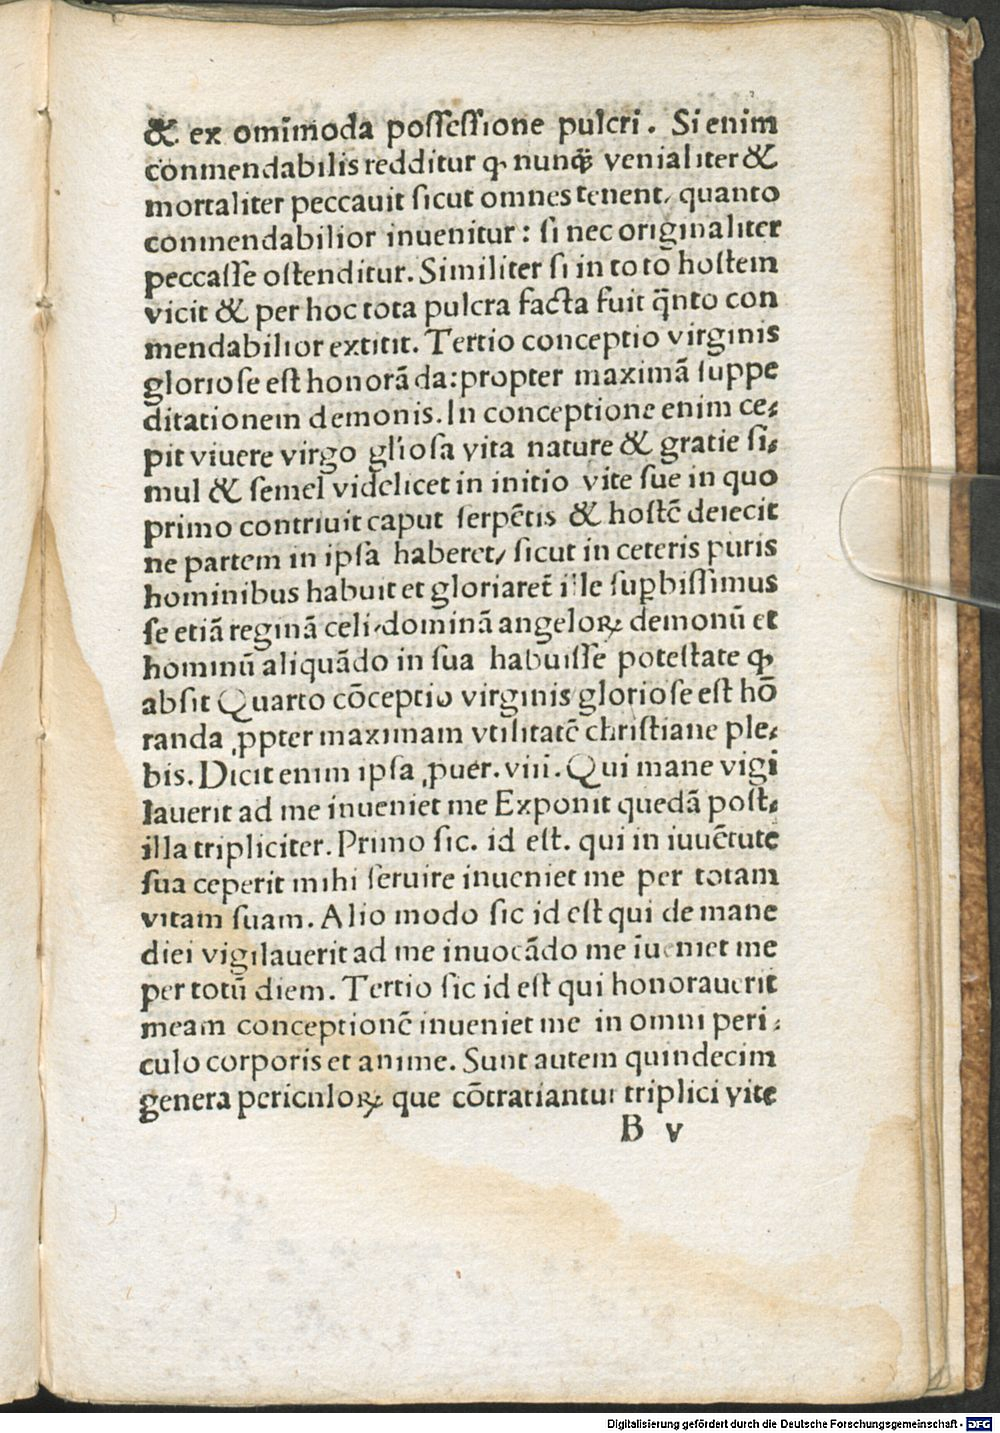 & ex omīmoda possessione pulcri. Si enim
conmendabilis redditur ꝙ nunꝗ̄ venialiter &
mortaliter peccauit sicut omnes tenent, quanto
conmendabilior inuenitur: si nec originaliter
peccasse ostenditur. Similiter si in toto hostem
vicit & per hoc tota pulcra facta fuit q̄nto con
mendabilior extitit. Tertio conceptio virginis
gloriose est honorāda: propter maximā suppe
ditationem demonis. In conceptione enim ce⸗
pit viuere virgo gl'iosa vita nature & gratie si⸗
mul & semel videlicet in initio vite sue in quo
primo contriuit caput serpētis & hostē deiecit
ne partem in ipsa haberet/ sicut in ceteris puris
hominibus habuit et gloriaret̄ ille suꝑbissimus
se etiā reginā celi, dominā angeloꝝ demonū et
hominū aliquādo in sua habuisse potestate ꝙ
absit Quarto cōceptio virginis gloriose est hō
randa ꝓpter maximam vtilitatē christiane ple⸗
bis. Dicit enim ipsa ꝓuer. viii. Qui mane vigi
lauerit ad me inueniet me Exponit quedā post⸗
illa tripliciter. Primo sic. id est. qui in iuuētute
sua ceperit mihi seruire inueniet me per totam
vitam suam. Alio modo sic id est qui de mane
diei vigilauerit ad me inuocādo me īueniet me
per totū diem. Tertio sic id est qui honorauerit
meam conceptionē inueniet me in omni peri⸗
culo corporis et anime. Sunt autem quindecim
genera periculoꝝ que cōtrariantur triplici vite
B v
Digitalisierung gefördert durch die Deutsche Forschungsgemeinschaft - DFG